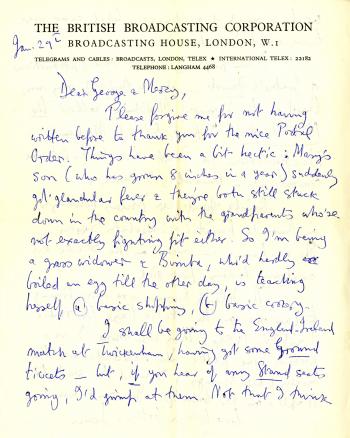 THE BRITISH BROADCASTING CORPORATION
BROADCASTING HOUSE, LONDON, W.1
TELEGRAMS AND CABLES: BROADCASTS, LONDON, TELEX ★ INTERNATIONAL TELEX: 22182
TELEPHONE: LANGHAM 4468
Jan. 29th
Dear George & Mercy,
Please forgive me for not having
written before to thank you for the nice Postal
Order. Things have been a bit hectic: Mary's
son (who has grown 8 inches in a year) suddenly
got glandular fever & they're both still stuck
down in the country with the grandparents who're
not exactly fighting fit either. So I'm being
a grass widower & Bimba, who'd hardly
boiled an egg till the other day, is teaching
herself (a) basic shopping, (b) basic cookery.
I shall be going to the England-Ireland
match at Twickenham, having got some Ground
tickets — but, if you hear of any Stand seats
going, I'd jump at them. Not that I think